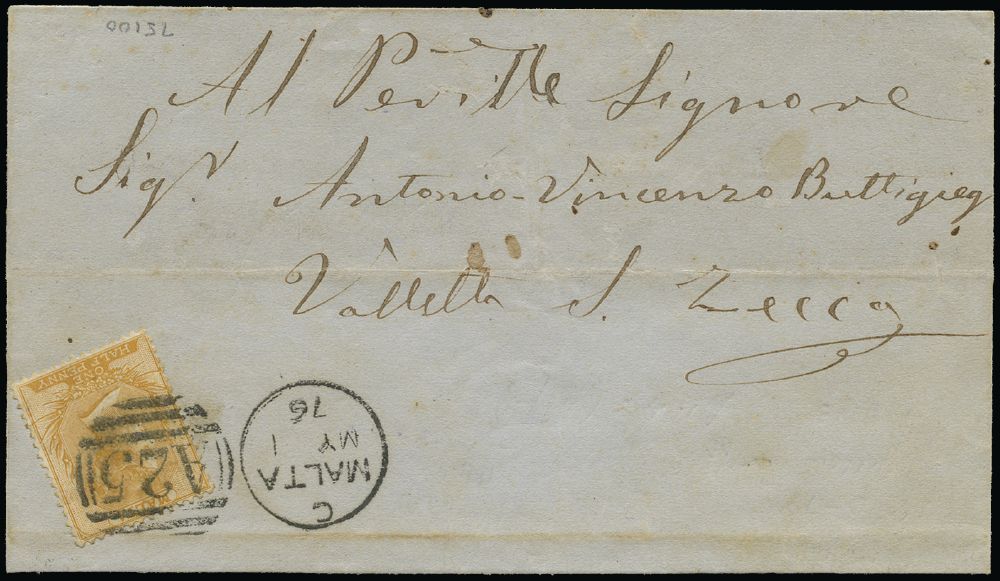 00157
Al Perille Signore
Sigr. Antonio Vincenzo Buttigieg
Valletta S. Zecca
HALF PENNY
ONE
MALTA
A25
C
MALTA
MY 1
76